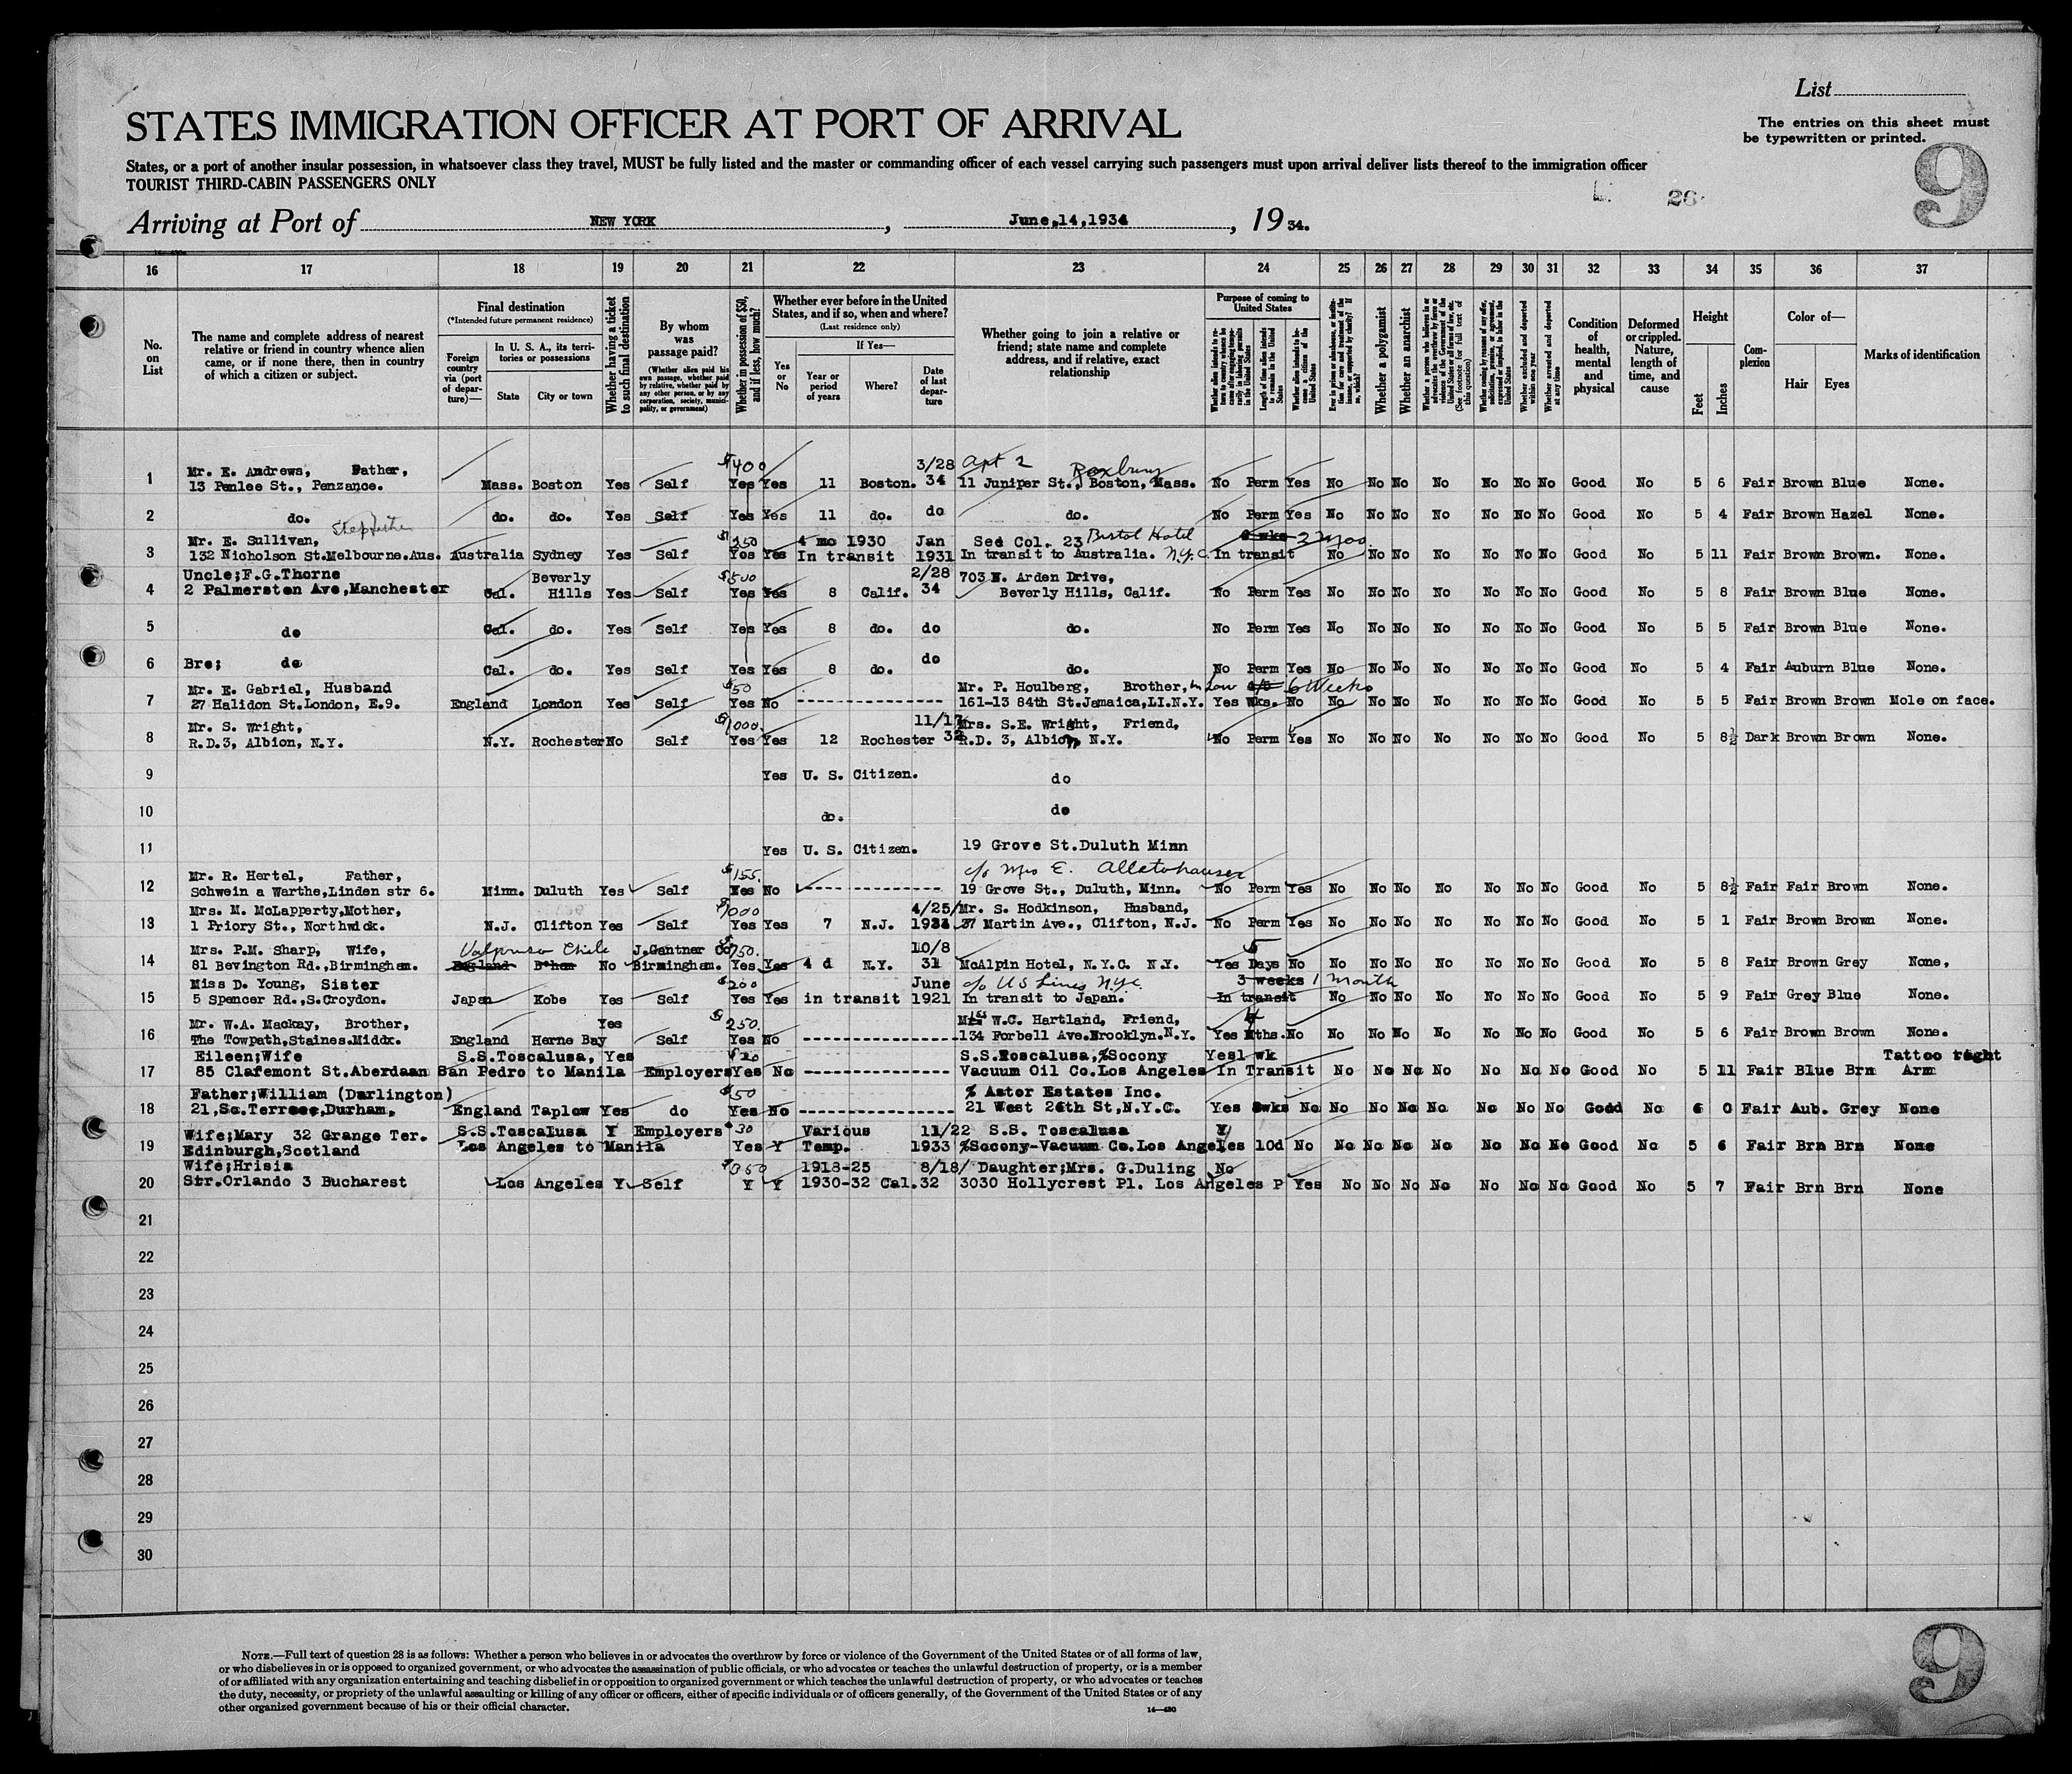 List
STATES IMMIGRATION OFFICER AT PORT OF ARRIVAL
The entries on this sheet must
be typewritten or printed.
9
States, or a port of another insular possession, in whatsoever class they travel, MUST be fully listed and the master or commanding officer of each vessel carrying such passengers must upon arrival deliver lists thereof to the immigration officer
TOURIST THIRD-CABIN PASSENGERS ONLY
26
Arriving at Port of NEW YORK, June,14,1934, 19 34.
16 17 18 19 20 21 22 23 24 25 26 27 28 29 30 31 32 33 34 35 36 37
No. on List
The name and complete address of nearest relative or friend in country whence alien came, or if none there, then in country of which a citizen or subject.
Final destination
(*Intended future permanent residence)
Foreign country via (port of departure)—
In U. S. A., its territories or possessions
State
City or town
Whether having a ticket to such final destination
By whom was passage paid?
(Whether alien paid his own passage, whether paid by relative, whether paid by any other person, or by any corporation, society, municipality, or government)
Whether in possession of $50, and if less, how much?
Whether ever before in the United States, and if so, when and where?
(Last residence only)
Yes or No
If Yes—
Year or period of years
Where?
Date of last departure
Whether going to join a relative or friend; state name and complete address, and if relative, exact relationship
Purpose of coming to United States
Whether alien intends to return to country whence he came after engaging temporarily in laboring pursuits in the United States
Length of time alien intends to remain in the United States
Whether alien intends to become a citizen of the United States
Ever in prison or almshouse, or institution for care and treatment of the insane, or supported by charity? If so, which?
Whether a polygamist
Whether an anarchist
Whether a person who believes in or advocates the overthrow by force or violence of the Government of the United States or all forms of law, etc. (See footnote for full text of this question)
Whether coming by reason of any offer, solicitation, promise, or agreement, expressed or implied, to labor in the United States
Whether excluded and deported within one year
Whether arrested and deported at any time
Condition of health, mental and physical
Deformed or crippled. Nature, length of time, and cause
Height
Feet
Inches
Complexion
Color of—
Hair
Eyes
Marks of identification
$400 3/28 Apt 2 Roxbury
1 Mr. E. Andrews, Father,
13 Penlee St., Penzance. Mass. Boston Yes Self Yes Yes 11 Boston. 34 11 Juniper St., Boston, Mass. No Perm Yes No No No No No No No Good No 5 6 Fair Brown Blue None.
2 do. do. do. Yes Self Yes Yes 11 do. do do. No Perm Yes No No No No No No No Good No 5 4 Fair Brown Hazel None.
Stepfather
3 Mr. E. Sullivan, $250 4 mo 1930 Jan Sed Col. 23 Bristol Hotel 3 mos.
132 Nicholson St.Melbourne.Aus. Australia Sydney Yes Self Yes Yes In transit 1931 In transit to Australia. N.Y.C. In transit No No No No No No No Good No 5 11 Fair Brown Brown. None.
Uncle;F.G.Thorne Beverly $500 2/28 703 N. Arden Drive,
4 2 Palmerston Ave,Manchester Cal. Hills Yes Self Yes Yes 8 Calif. 34 Beverly Hills, Calif. No Perm Yes No No No No No No No Good No 5 8 Fair Brown Blue None.
5 do Cal. do. Yes Self Yes Yes 8 do. do do. No Perm Yes No No No No No No No Good No 5 5 Fair Brown Blue None.
6 Bro; do Cal. do. Yes Self Yes Yes 8 do. do do. No Perm Yes No No No No No No No Good No 5 4 Fair Auburn Blue None.
7 Mr. E. Gabriel, Husband $50 Mr. P. Houlberg, Brother, in Law 6 Weeks
27 Halidon St.London, E.9. England London Yes Self Yes No ---------------- 161-13 84th St.Jamaica,LI.N.Y. Yes Wks. No No No No No No No No Good No 5 5 Fair Brown Brown Mole on face.
8 Mr. S. Wright, $1000. 11/17 Mrs. S.E. Wright, Friend,
R.D.3, Albion, N.Y. N.Y. Rochester No Self Yes Yes 12 Rochester 32 R.D. 3, Albion, N.Y. No Perm Yes No No No No No No No Good No 5 8½ Dark Brown Brown None.
9 Yes U. S. Citizen. do
10 do. do
11 Yes U. S. Citizen. 19 Grove St.Duluth Minn
12 Mr. R. Hertel, Father, $155. c/o Mrs E.
Schwein a Warthe,Linden str 6. Minn. Duluth Yes Self Yes No ---------------- 19 Grove St., Duluth, Minn. No Perm Yes No No No No No No No Good No 5 8½ Fair Fair Brown None.
13 Mrs. M. McLapperty,Mother, $1000 4/25/ Mr. S. Hodkinson, Husband,
1 Priory St., Northwick. N.J. Clifton Yes Self Yes Yes 7 N.J. 37 Martin Ave., Clifton, N.J. No Perm Yes No No No No No No No Good No 5 1 Fair Brown Brown None.
14 Mrs. P.M. Sharp, Wife, Valparaiso Chile J.Gantner Co $750. 10/8 5
81 Bevington Rd.,Birmingham. England B'ham No Birmingham. Yes Yes 4 d N.Y. 31 McAlpin Hotel, N.Y.C. N.Y. Yes Days No No No No No No No No Good No 5 8 Fair Brown Grey None,
15 Miss D. Young, Sister $200 June c/o US Lines N.Y.C. 3 weeks 1 Month
5 Spencer Rd.,S.Croydon. Japan Kobe Yes Self Yes Yes in transit 1921 In transit to Japan. In transit No No No No No No No Good No 5 9 Fair Grey Blue None.
16 Mr. W.A. Mackay, Brother, Yes $250. W.C. Hartland, Friend, 4
The Towpath,Staines.Middx. England Herne Bay Self Yes No ---------------- 134 Forbell Ave.Brooklyn.N.Y. Yes Mths. No No No No No No No No Good No 5 6 Fair Brown Brown None.
17 Eileen;Wife S.S.Toscalusa, Yes $20 S.S.Toscalusa,%Socony Yes1 wk Tattoo right
85 Clafemont St.Aberdaan San Pedro to Manila Employers Yes No ---------------- Vacuum Oil Co.Los Angeles In Transit No No No No No No No Good No 5 11 Fair Blue Brn Arm
18 Father;William (Darlington) $50 % Astor Estates Inc.
21,So.Terrace,Durham, England Taplow Yes do Yes No ---------------- 21 West 26th St,N.Y.C. Yes 8wks No No No No No No No No Good No 6 0 Fair Aub. Grey None
19 Wife;Mary 32 Grange Ter. S.S.Toscalusa Y Employers $30 Various 11/22 S.S. Toscalusa Y
Edinburgh,Scotland Los Angeles to Manila Yes Y Temp. 1933 %Socony-Vacuum Co.Los Angeles 10d No No No No No No No No Good No 5 6 Fair Brn Brn None
20 Wife;Hrisia $350 1918-25 8/18/ Daughter;Mrs. G.Duling No
Str.Orlando 3 Bucharest Los Angeles Y Self Y Y 1930-32 Cal.32 3030 Hollycrest Pl. Los Angeles P Yes No No No No No No No Good No 5 7 Fair Brn Brn None
21
22
23
24
25
26
27
28
29
30
NOTE.—Full text of question 28 is as follows: Whether a person who believes in or advocates the overthrow by force or violence of the Government of the United States or of all forms of law,
or who disbelieves in or is opposed to organized government, or who advocates the assassination of public officials, or who advocates or teaches the unlawful destruction of property, or is a member
of or affiliated with any organization entertaining and teaching disbelief in or opposition to organized government or which teaches the unlawful destruction of property, or who advocates or teaches
the duty, necessity, or propriety of the unlawful assaulting or killing of any officer or officers, either of specific individuals or of officers generally, of the Government of the United States or of any
other organized government because of his or their official character.
14—430
9